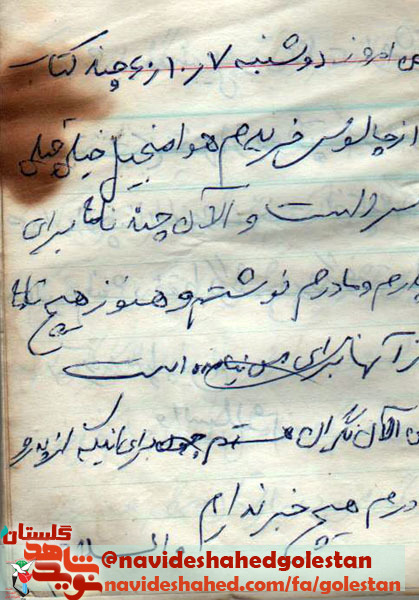 من امروز دوشنبه ۷ ر ۱۰ ر ۶۰ چند کتاب
از چالوس خریدم هوا منجیل خیلی خیلی
سرد است و الآن چند تا نامه برای
پدرم و مادرم نوشتم و هنوز هیچ نامه
از آنها برای من نیامده است
من الآن نگران هستم برای اینکه از پدر و
مادرم هیچ خبر ندارم
والسلام
گلستان
نوید شاهد
@navideshahedgolestan
navideshahed.com/fa/golestan